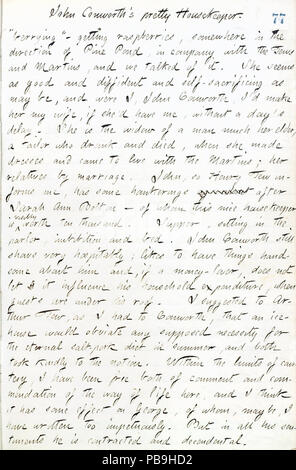 John Conworth's pretty Housekeeper.
77
"berrying" – getting raspberries, somewhere in the
direction of Pine Pond, in company with the Tews
and Martins and we talked of it. She seems
as good and diffident and self-sacrificing as
may be, and were I John Conworth I'd make
her my wife, if she'd have me, without a day's
delay. She is the widow of a man much her elder,
a tailor who drank and died, when she made
dresses and came to live with the Martins; her
relatives by marriage. John, so Harry Tew in-
forms me, has some hankerings after
Sarah Ann Bolton – of whom this nice housekeeper
is worth ten thousand. Supper, sitting in the
parlor, institution and bed. John Conworth still
shaves very hospitably; likes to have things hand-
some about him and, if a money-lover, does not
let it influence his household expenditure, when
guests are under his roof. I suggested to Ar-
thur Tew, as I had to Conworth, that an ice-
house would obviate any supposed necessity for
the eternal salt-pork diet in summer and both
took kindly to the notion. Within the limits of
I have been free both of comment and com-
mendation of the way of life here, and I think
it has some effect on George, of whom, maybe, I
have written too impetuously. But in all his sen-
timents he is contracted and
alamy
Image ID: PB9HD2
www.alamy.com